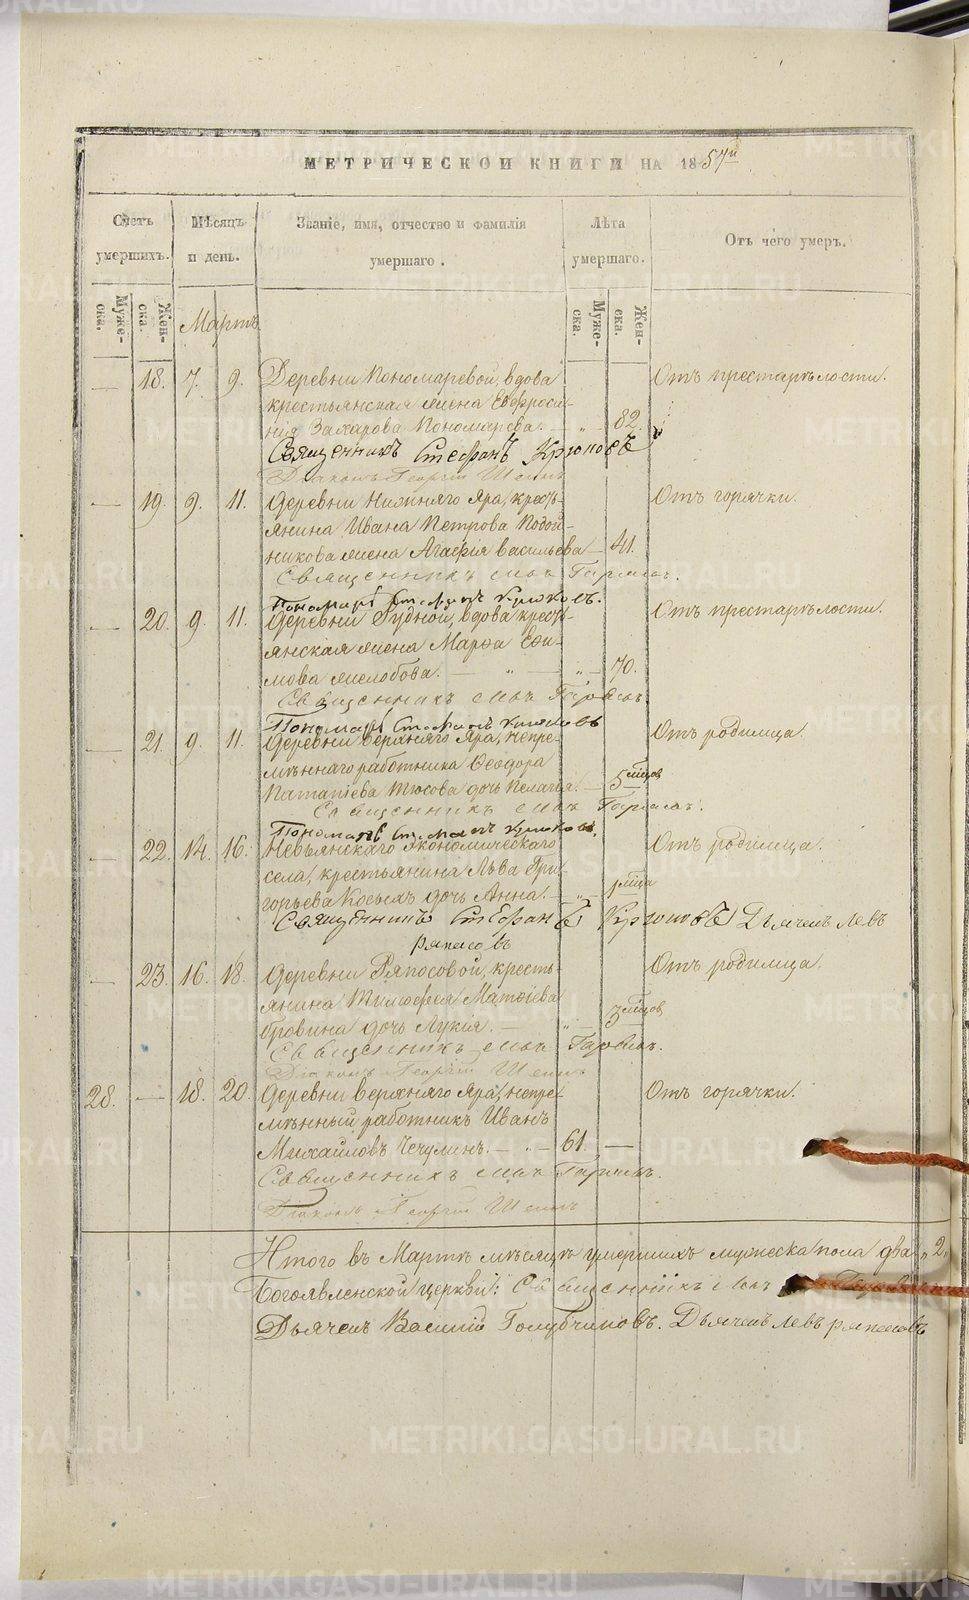 МЕТРИЧЕСКОЙ КНИГИ НА 1857й
Счетъ умершихъ.
Мѣсяцъ и день.
Званіе, имя, отчество и фамилія умершаго.
Лѣта умершаго.
Отъ чего умеръ.
Муже-ска.
Жен-ска.
Муже-ска.
Жен-ска.
Мартъ
— 18. 7. 9. Деревни Пономаревой, вдова Отъ престарѣлости.
крестьянская жена Евфроси-
нія Захарова Пономарева. — „ — 82.
Священникъ Стефанъ Крюковъ
Діаконъ Георгій
— 19. 9. 11. Деревни Нижняго Яра, кресть- Отъ горячки.
янина Ивана Петрова Подой-
никова жена Агафія Васильева — 41.
Священникъ Илья
Пономарь Стефанъ Крюковъ.
— 20. 9. 11. Деревни Рудной, вдова кресть- Отъ престарѣлости.
янская жена Марфа Ефи-
мова — „ — 70.
Священникъ Илья
Пономарь Стефанъ Крюковъ
— 21. 9. 11. Деревни Верхняго Яра, непре- Отъ родимца.
мѣннаго работника Ѳеодора
дочь Пелагія. — 5 мѣцов
Священникъ Илья
Пономарь Стефанъ Крюковъ.
— 22. 14. 16. Невьянскаго экономическаго Отъ родимца.
села, крестьянина Льва Гри-
горьева Косыхъ дочь Анна. — „ 1 мѣца
Священникъ Стефанъ Крюковъ Дьячекъ Левъ
Ряпасовъ
— 23. 16. 18. Деревни Ряпосовой, кресть- Отъ родимца.
янина Тимофея Матвіева
дочь Лукія. — „ 3 мѣцов
Священникъ Илья
Діаконъ Георгій
28. — 18. 20. Деревни Верхняго Яра, непре- Отъ горячки.
мѣнный работникъ Иванъ
Михайловъ Чечулинъ. — „ — 61. —
Священникъ Илья
Діаконъ Георгій
Итого въ Мартѣ мѣсяцѣ умершихъ мужеска пола два „2„
Богоявленской церкви: Священникъ Илья
Дьячекъ Василій Голубчиковъ. Дьячекъ Левъ Ряпасовъ
METRIKI.GASO-URAL.RU